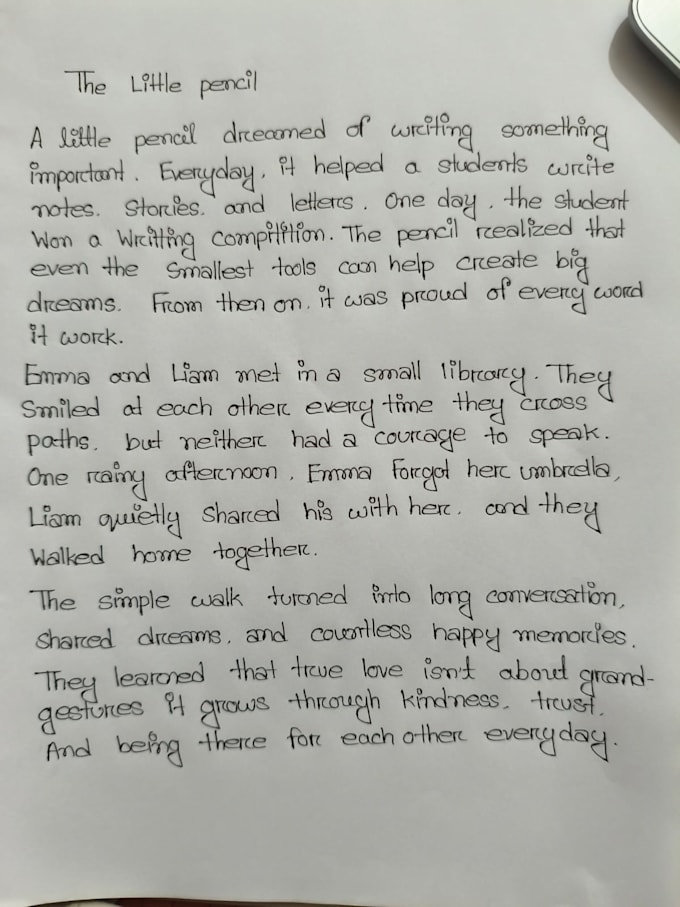 The Little pencil
A little pencil dreamed of writing something
important. Everyday, it helped a students write
notes. stories. and letters. One day, the student
Won a Writting Compitition. The pencil realized that
even the smallest tools can help create big
dreams. From then on, it was proud of every word
it work.
Emma and Liam met in a small library. They
Smiled at each other every time they cross
paths, but neither had a courage to speak.
One rainy afternoon, Emma Forgot her umbrella,
Liam quietly shared his with her, and they
Walked home together.
The simple walk turned into long conversation,
shared dreams, and countless happy memories.
They learned that true love isn't about grand-
gestures it grows through kindness, trust,
And being there for each other everyday.